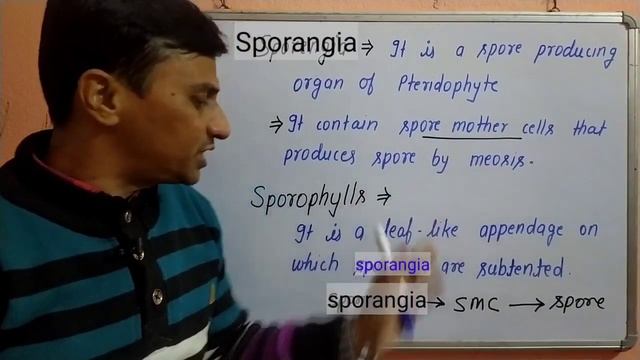 Sporangia ⇒ It is a spore producing
organ of Pteridophyte
⇒ It contain spore mother cells that
produces spore by meosis.
Sporophylls ⇒
It is a leaf-like appendage on
which sporangia are subtented.
sporangia → SMC → spore